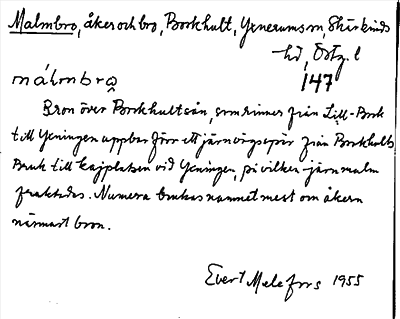 Malmbro, åker och bro, Borkhult, Yxnerums sn, Skärkinds
hd, Östg. l
147
målmbrω̂
Bron över Borkhultsån, som rinner från Lill-Bork
till Yxningen uppbar förr ett järnvägsspår från Borkhults
Bruk till kajplatsen vid Yxningen, på vilken järnmalm
fraktades. Numera brukas namnet mest om åkern
närmast bron.
Evert Melefors 1955